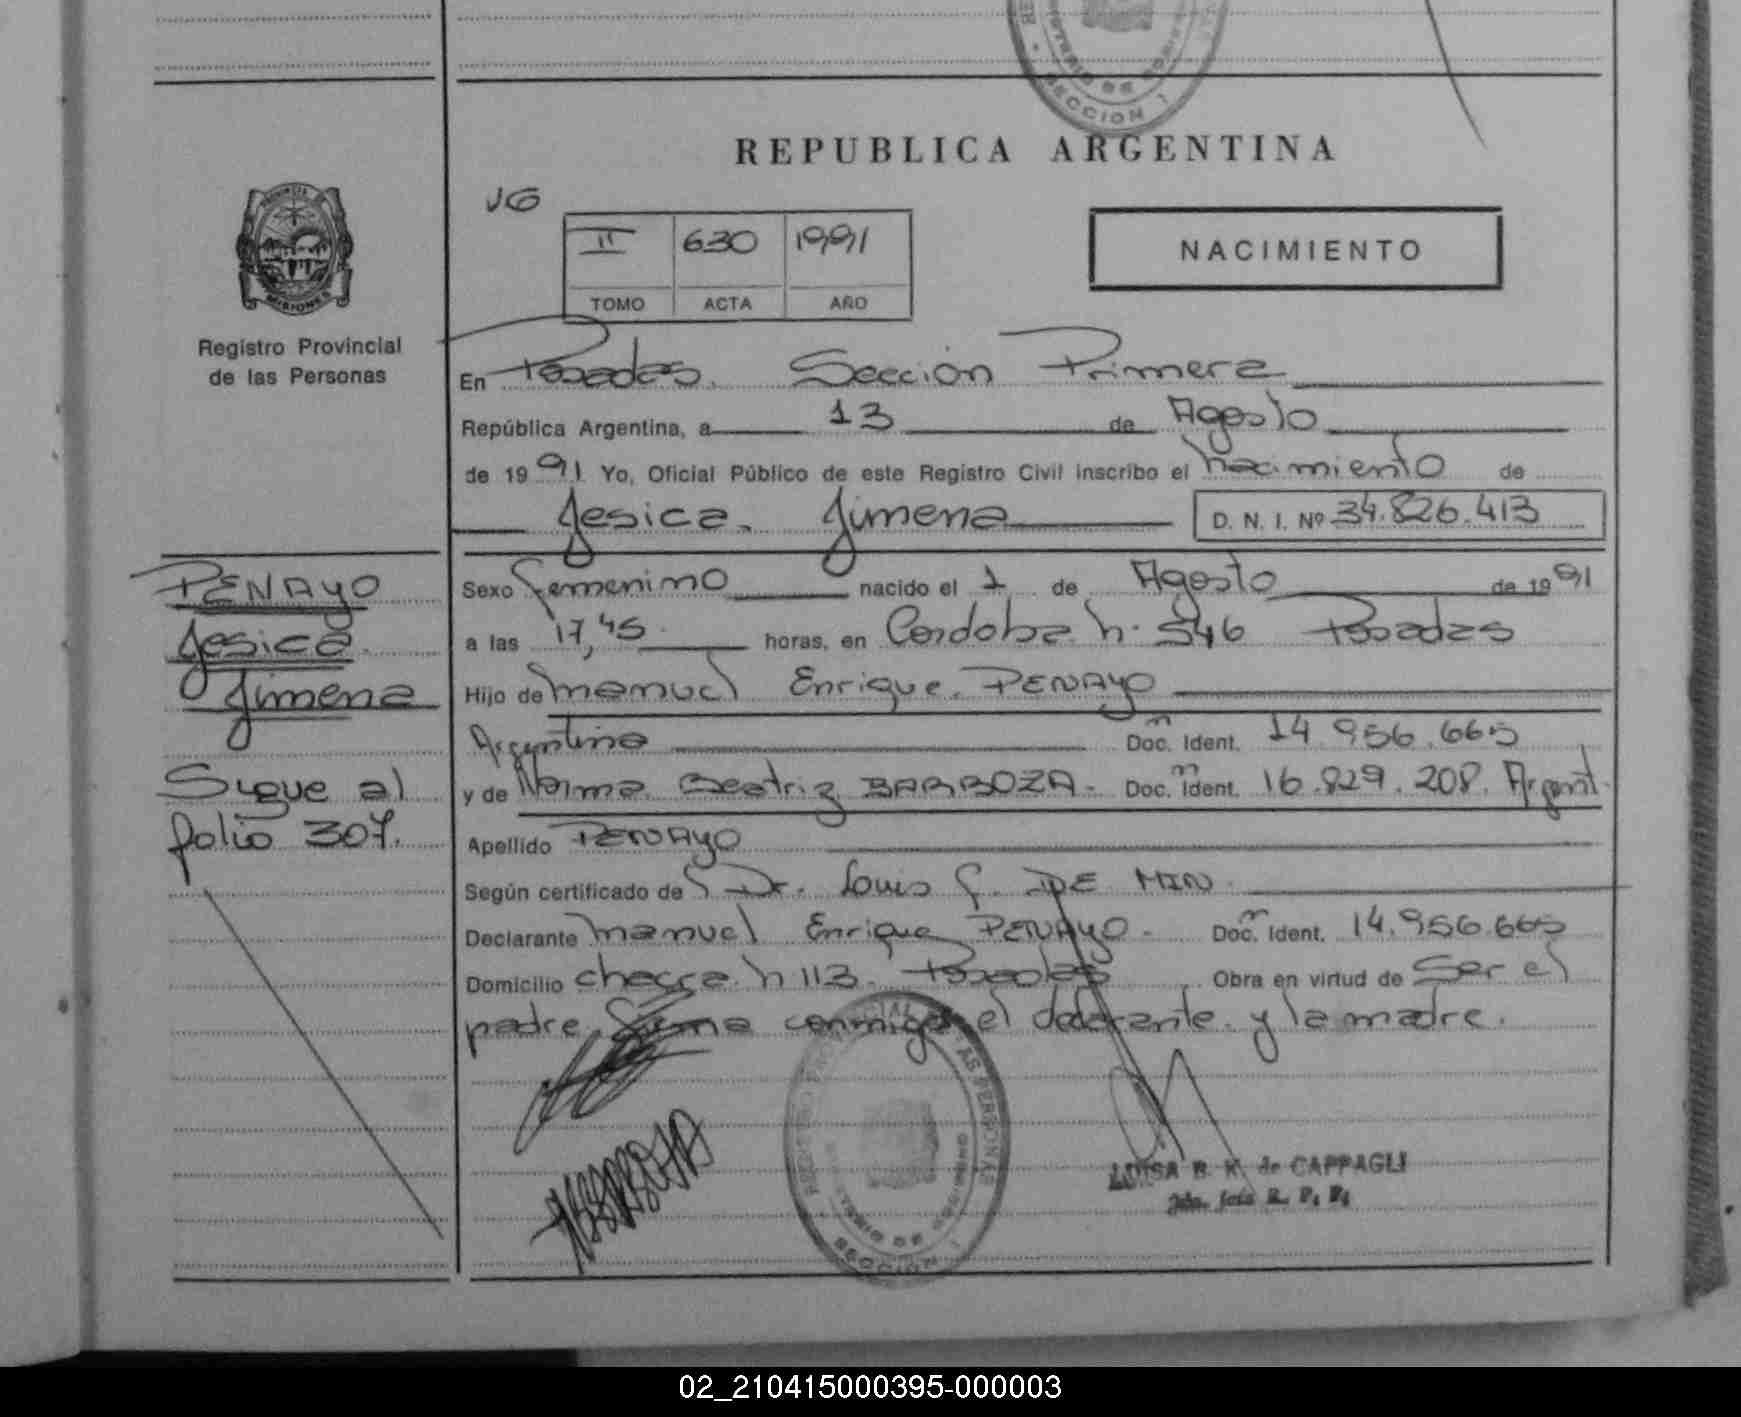 REPUBLICA ARGENTINA
SECCION 1
PROVINCIA DE
MISIONES
Registro Provincial
de las Personas
JG
II 630 1991
TOMO ACTA AÑO
NACIMIENTO
En Posadas. Sección Primera
República Argentina, a 13 de Agosto
de 1991 Yo, Oficial Público de este Registro Civil inscribo el nacimiento de
Jesica. Jimena D. N. I. Nº 34.826.413
PENAYO
Jesica.
Jimena
Sigue al
folio 307.
Sexo femenino nacido el 1 de Agosto de 1991
a las 17,45. horas, en Cordoba. n. 546 Posadas
Hijo de Manuel Enrique. PENAYO
Argentino Doc. Ident. 14.956.665
y de Norma Beatriz BARBOZA. Doc. Ident. 16.829.208. Argent.
Apellido PENAYO
Según certificado de Dr. Louis G. DE MIN.
Declarante Manuel Enrique PENAYO. Doc. Ident. 14.956.665
Domicilio n 113. Posadas Obra en virtud de Ser el
padre, Firma conmigo el declarante. y la madre.
LUISA B. K. de CAPPAGLI
02_210415000395-000003